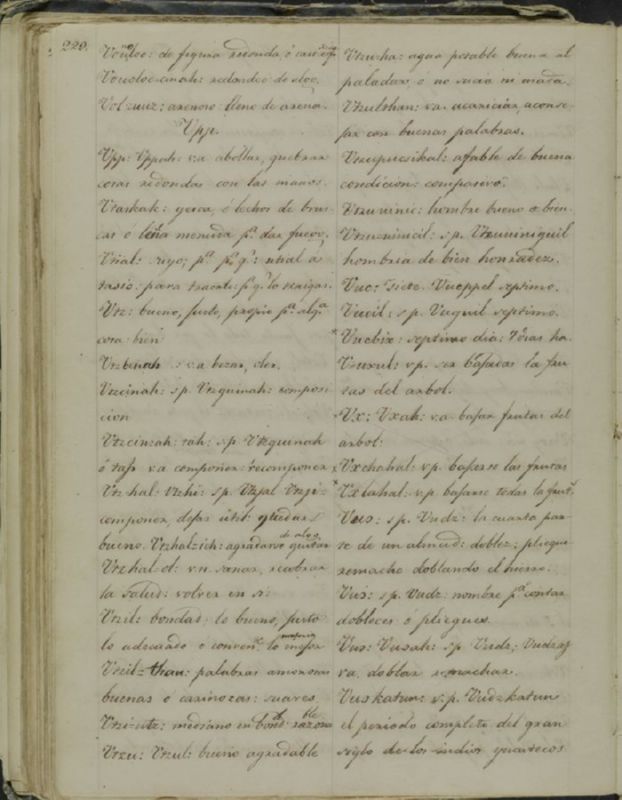 220.
de figura redonda, ó
redondez de
Vol zuuz: arenoso: lleno de arena.
Vpp.
Vpp: Vppah: va abollar, quebrar
cosas redondas con las manos.
yesca, ó lechos de brus-
cas ó leña menuda pa. dar fuego.
Vtial: suyo; pa. pa. q.: utial a
tasic. para traerte: pa. q. lo traigas.
Vtz: bueno, justo, propio pa. alga.
cosa: bien
Vtzbenah: va besar, oler.
Vtzcinah: sp. Vtzquinah: composi-
cion
Vtzcinzah: zah: sp. Vtzquinah
ó va componer: recomponer
Vtzhal: Vtzhi: sp. Vtzjal Vtzji:
componer, dejar util: quedar
bueno. Vtzhalzich: agradarse gustar
de algo
Vtzhal ol: v.n sanar, recobrar
la salud: volver en si:
Vtzil: bondad: lo bueno, justo
lo adecuado ó convente. lo mejor
Vtzil-than: palabras amorosas
buenas ó cariñosas: suaves
mediano en bondad: razonable
Vtzu: Vtzul: bueno agradable
agua potable buena al
paladar ó no sucia ni
Vtzulthan: va. acariciar, aconse-
jar con buenas palabras.
Vtzupucsikal: afable de buena
condicion: compasivo.
Vtzuuinic: hombre bueno o bien.
Vtzuuinicil: sp. Vtzuuiniquil
hombria de bien honradez.
Vuc: siete. Vucppel septimo.
Vucil: sp. Vuquil septimo.
Vucbix: septimo dia: 7 dias ha.
Vuxul: vp. ser bajadas la fru-
tas del arbol.
Vx: Vxah: va. bajar frutas del
arbol:
Vxchahal: vp. bajarse las frutas
Vxlahal: vp. bajarse todas la frut.s
Vuo: sp. Vudz: la cuarta par-
te de un almud: doblez: pliegue
remache doblando el hierro.
Vuo: sp. Vudz: nombre pa. contar
dobleces ó pliegues.
Vuo: Vuoah: sp. Vudz; Vudzaj
va. doblar remachar.
Vuokatun: vp. Vudzkatun
el periodo completo del gran
siglo de los indios yucatecos